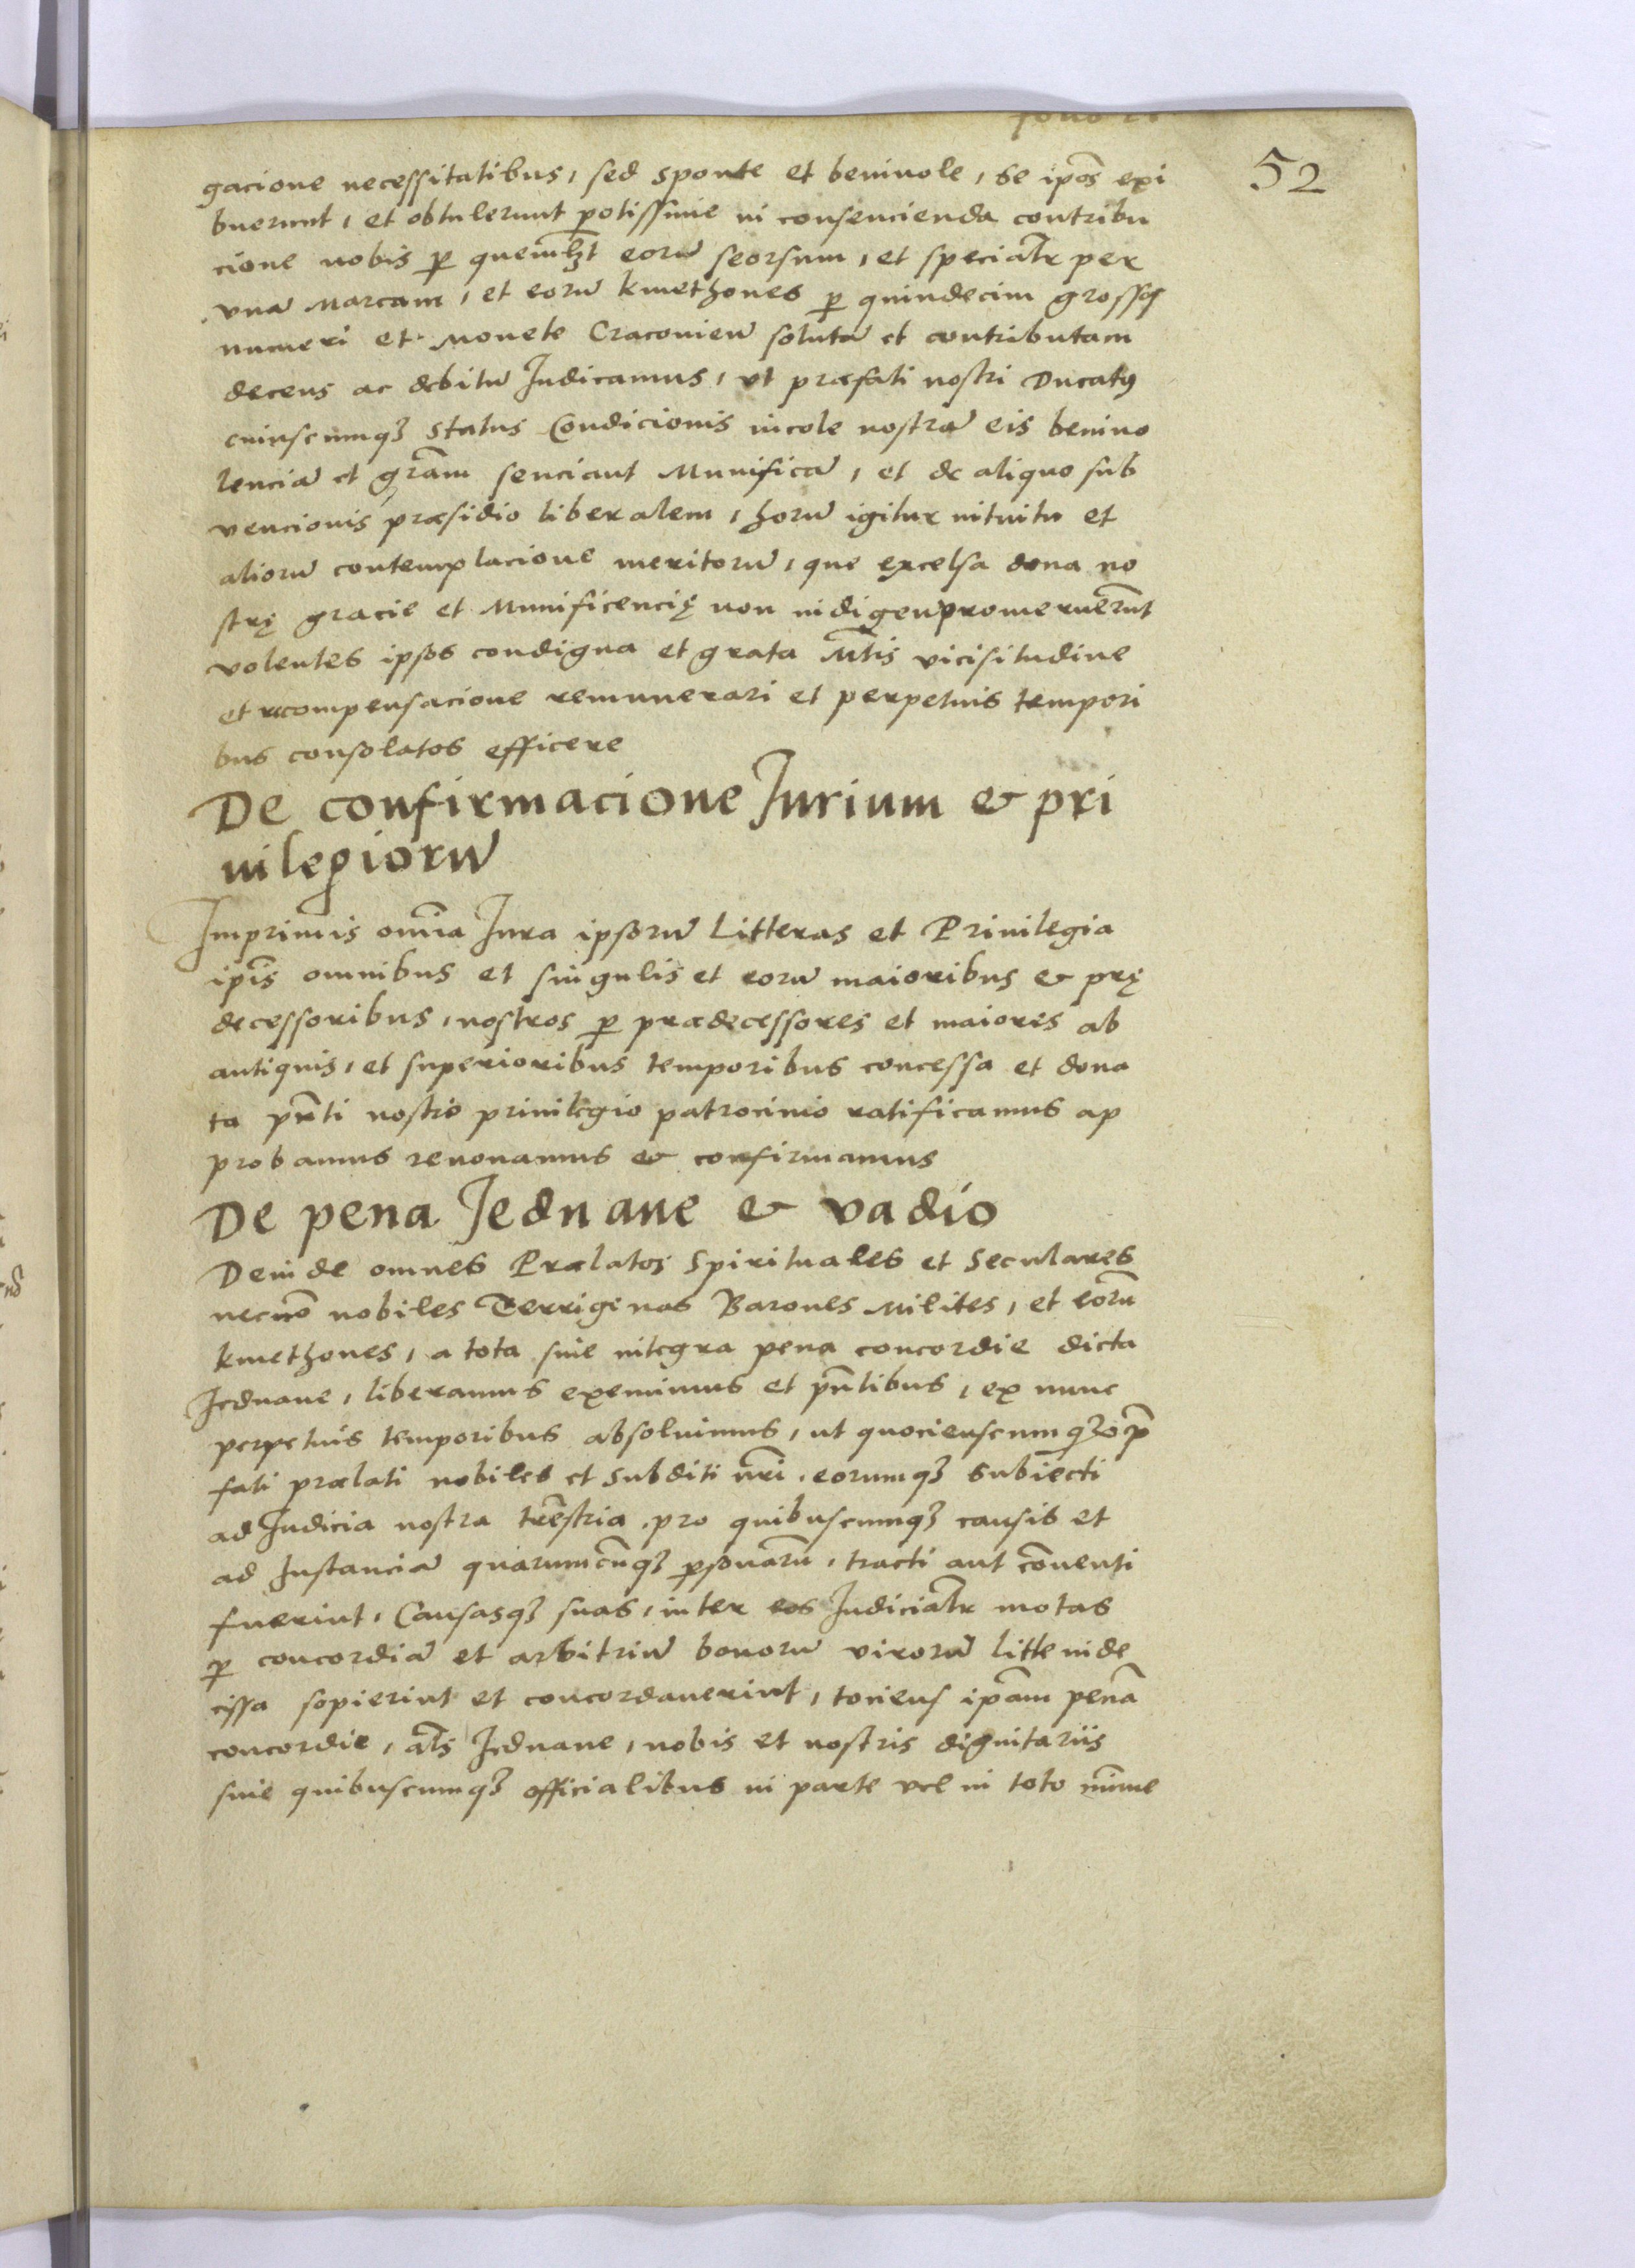 52
gacione necessitatibus, sed sponte et beniuole, se ip̄os exi
buerunt, et obtulerunt potissime in consencienda contribu
cione nobis ꝑ quemlꝫt eorū seorsum, et speciatr̄ per
vnā Marcam, et eorū kmethones ꝑ quindecim grossos
numeri et Monete Cracouien̄ solutā et contributam
decens ac debitū Judicamus, vt præfati nostri Ducatꝰ
cuiuscumqꝫ status Condicionis incole nostrā eis beniuo
lenciā et gr̄am senciant Munificā, et de aliquo sub
vencionis præsidio liberalem, horū igitur intuitu et
aliorū contemplacione meritorū, que excelsa dona no
strę gracie et Munificencię non indigen̄ promeruer̄unt
volentes ipsos condigna et grata Mt̄is vicisitudine
et recompensacione remunerari et perpetuis tempori
bus consolatos efficere
De confirmacione Jurium & pri
uilegiorū
Imprimis om̄ia Jura ipsorū Litteras et Priuilegia
ip̄is omnibus et singulis et eorū maioribus & prę
decessoribus, nostros ꝑ prædecessores et maiores ab
antiquis, et superioribus temporibus concessa et dona
ta pn̄ti nostro priuilegio patrocinio ratificamus ap
probamus renouamus & confirmamus
De pena Jednane & vadio
Deinde omnes Prælatos Spirituales et Seculares
necnō nobiles Terrigenas Barones Milites, et eorū
kmethones, a tota siue integra pena concordie dicta
Jednane, liberamus eximimus et pn̄tibus, ex nunc
perpetuis temporibus absoluimus, ut quocienscumqꝫ p̄
fati prælati nobiles et subditi nr̄i, eorumqꝫ subiecti
ad Judicia nostra trēstria pro quibuscumqꝫ causis et
ad Instanciā quarumcūqꝫ ꝑsonarū, tracti aut cōuenti
fuerint, Causasqꝫ suas, inter eos Judiciatr̄ motas
ꝑ concordiā et arbitriū bonorū virorū litte inde
cissa sopierint et concordauerint, tociens ip̄am penā
concordie, al̄s Jednane, nobis et nostris dignitariis
siue quibuscumqꝫ officialibus in parte vel in toto mīme